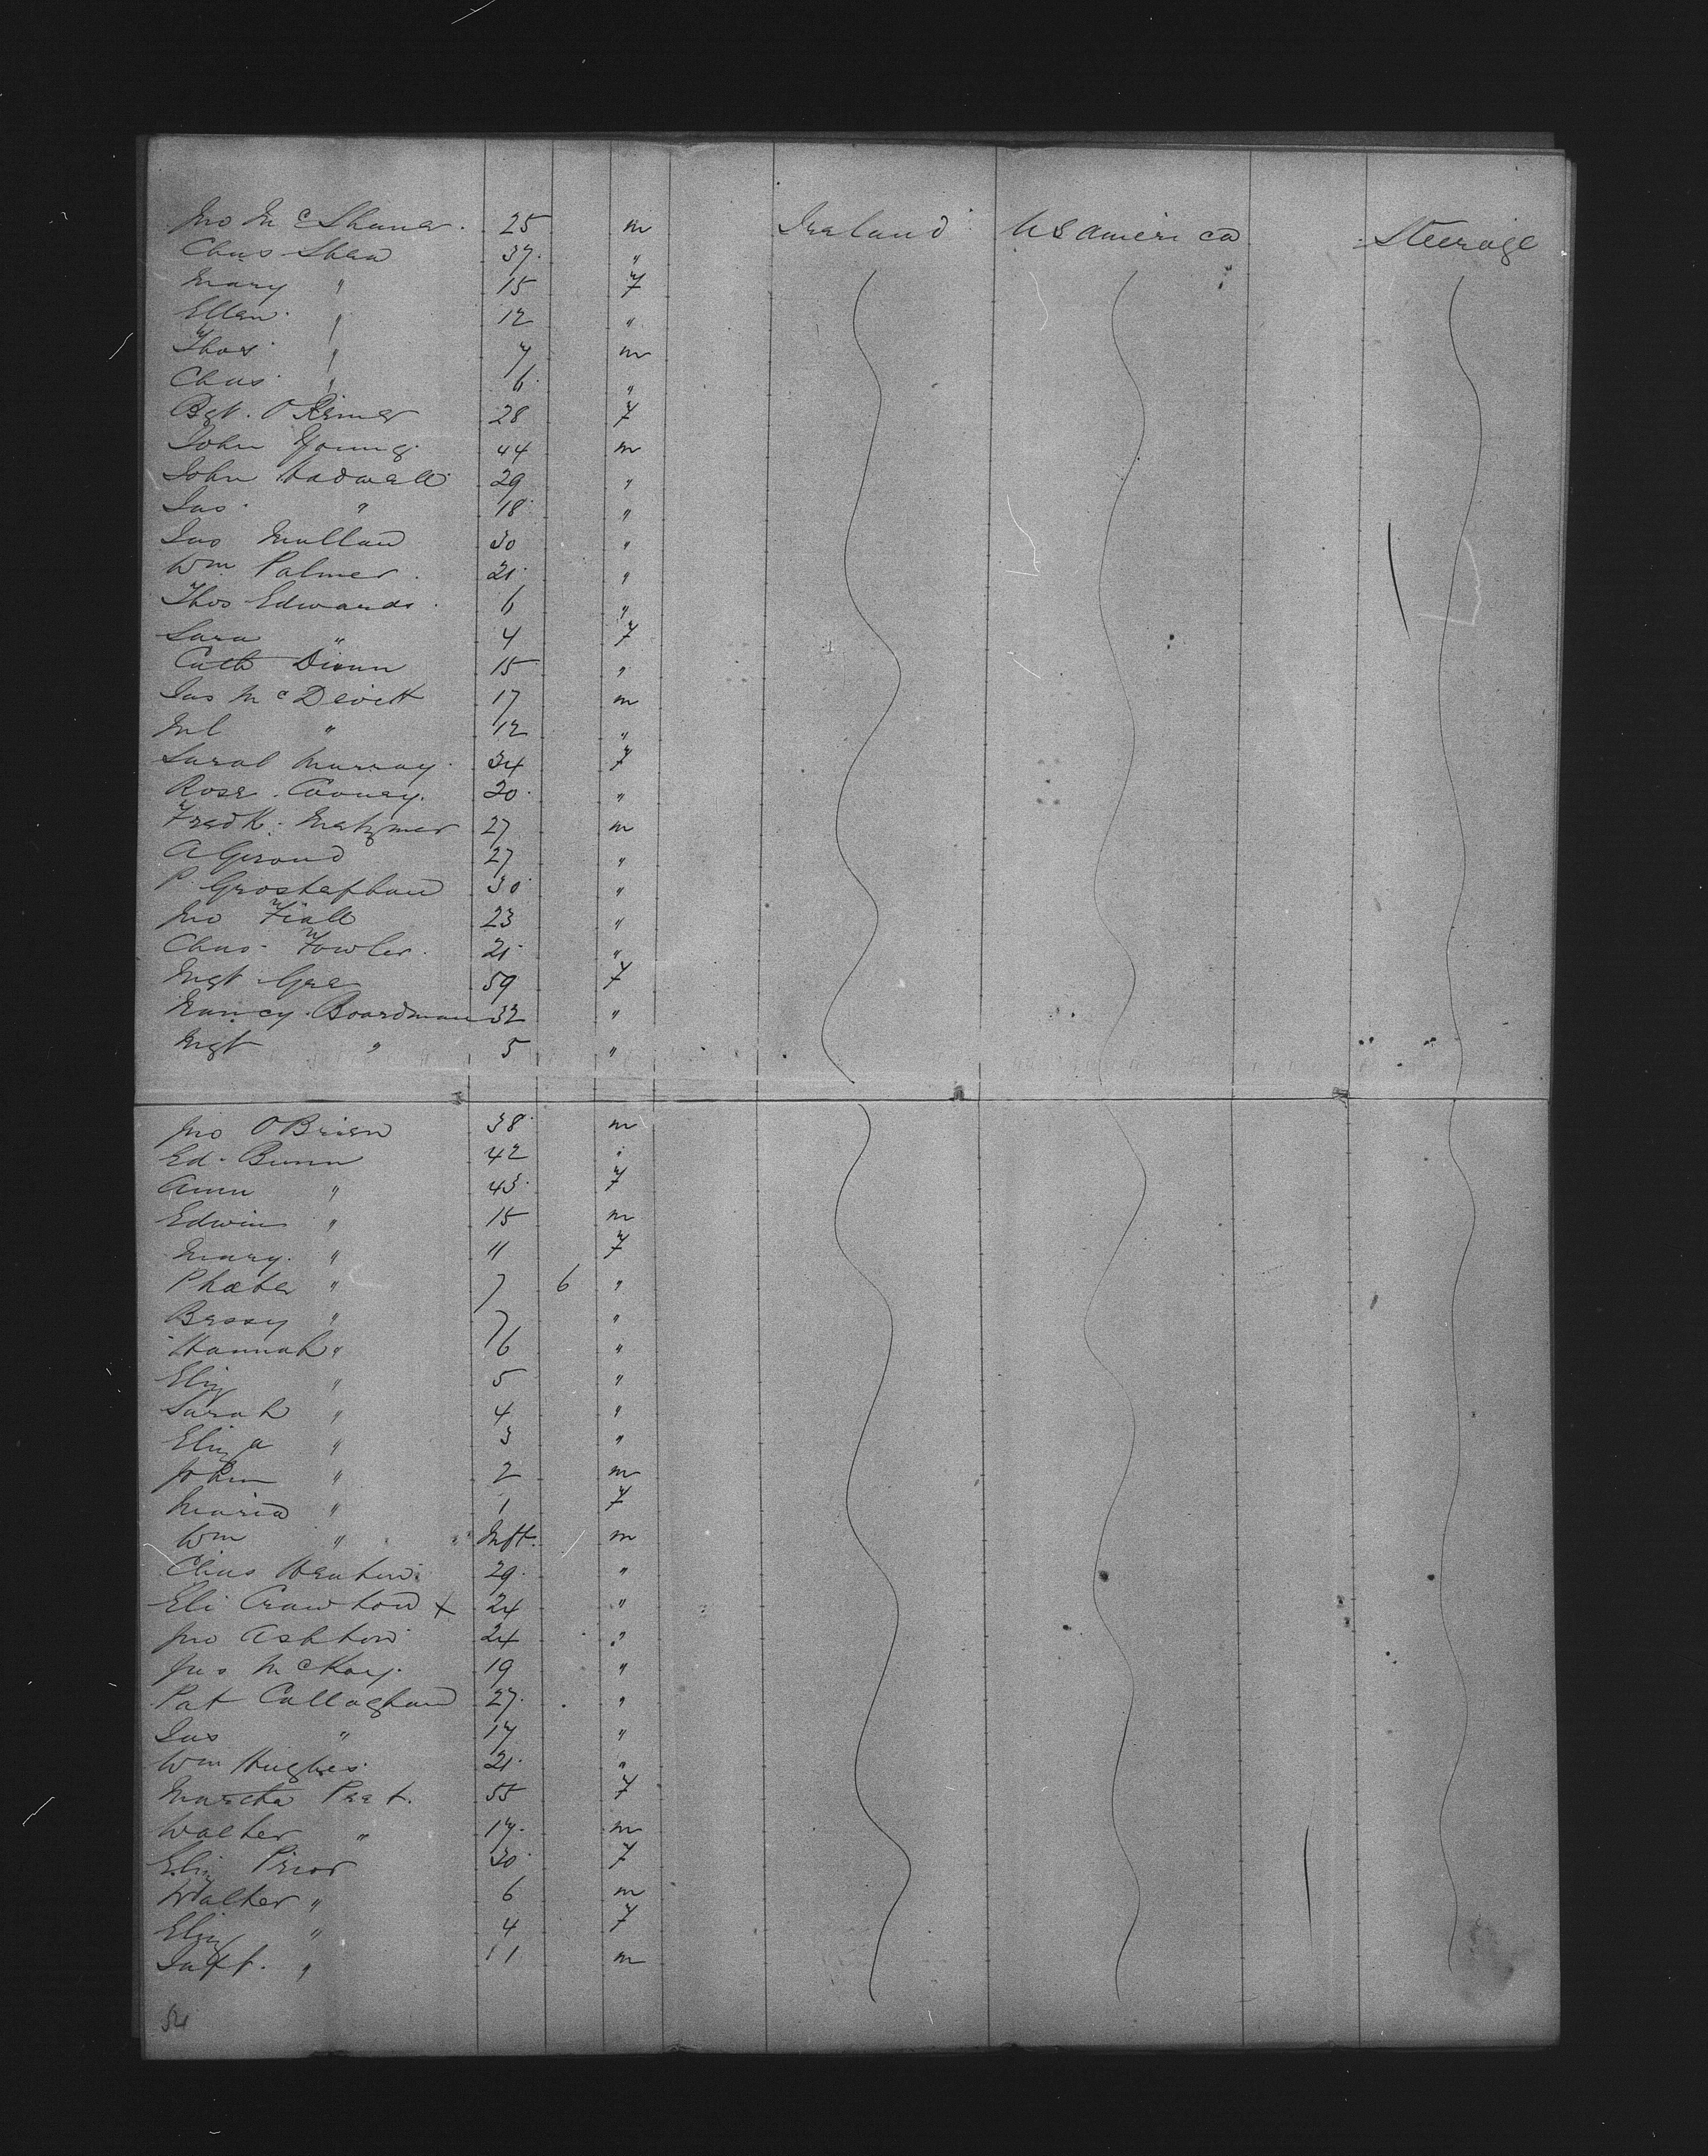 Jno McShane 25 m Ireland US America Steerage
Chas Shaw 37 "
Mary " 15 F
Ellen " 12 "
Thos " 7 m
Chas " 6 "
Bgt. 28 F
John Young 44 m
John Hadwell 29 "
Jas " 18 "
Jas Mullan 30 "
Wm Palmer 21 "
Thos Edwards 6 "
Sara " 4 F
Cath 15 "
Jas McDevitt 17 m
Ml " 12 "
Sarah Murray 34 F
Rose Cooney 20 "
Fredk 27 m
A Geroud 27 "
P 30 "
Jno Fiall 23 "
Chas Fowler 21 "
Mgt Gee 59 F
Nancy Boardman 32 "
Mgt " 5 "
Jno O'Brien 38 m
Ed. Bunn 42 "
Ann " 43 F
Edwin " 15 m
Mary " 11 F
Phoebe " 7 6 "
Bessy " 7 "
Hannah " 6 "
Eliz " 5 "
Sarah " 4 "
Eliza " 3 "
John " 2 m
Maria " 1 F
Wm " Inft. m
Chas Heaton 29 "
Eli Crawton x 24 "
Jno Ashton 24 "
Jas McKay 19 "
Pat Callaghan 27 "
Jas " 17 "
Wm Hughes 21 "
Martha Peet 55 F
Walter " 17 m
Eliz Prior 30 F
Walter " 6 m
Eliz " 4 F
Inft. " 11 m
54